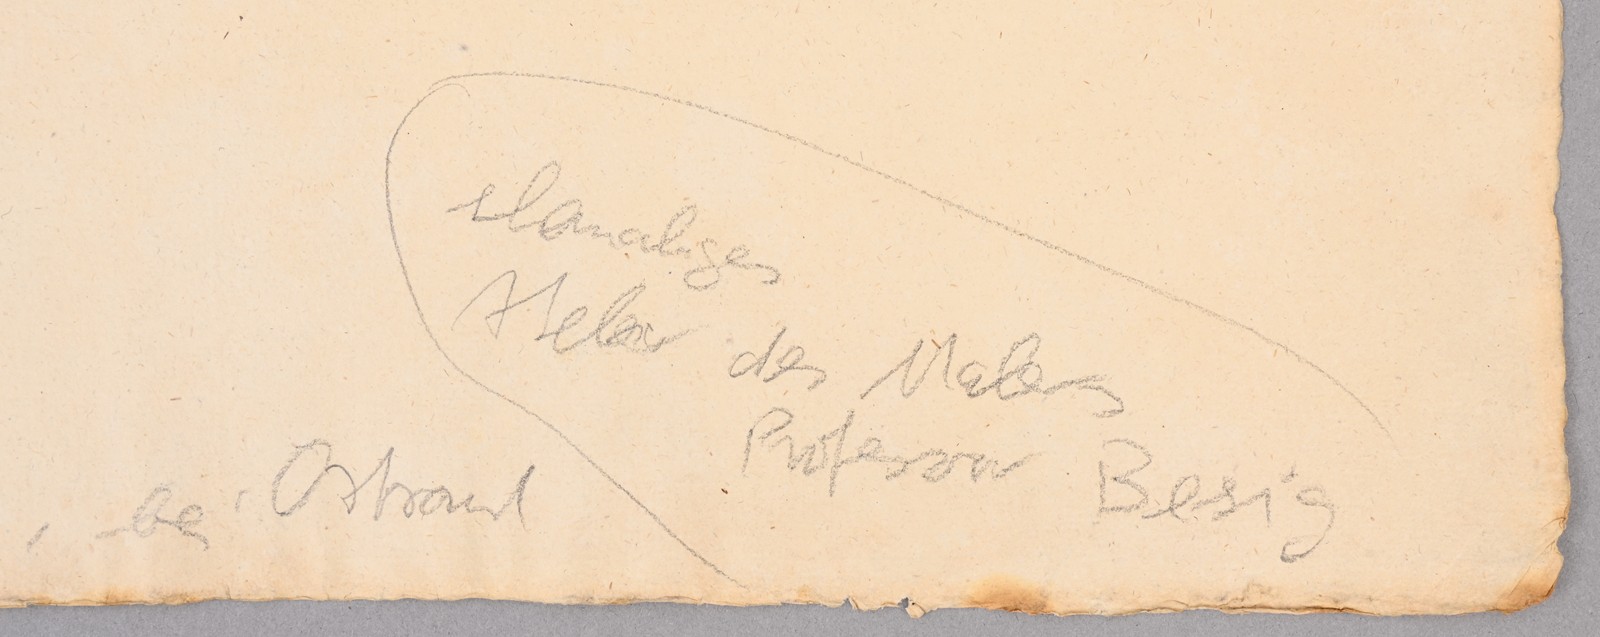 ehemaliges
Atelier des Malers
Professor Besig
, bei Ostrand